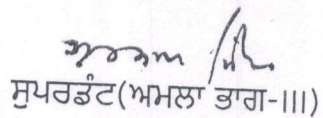 ਸੁਪਰਡੰਟ(ਅਮਲਾ ਭਾਗ-III)